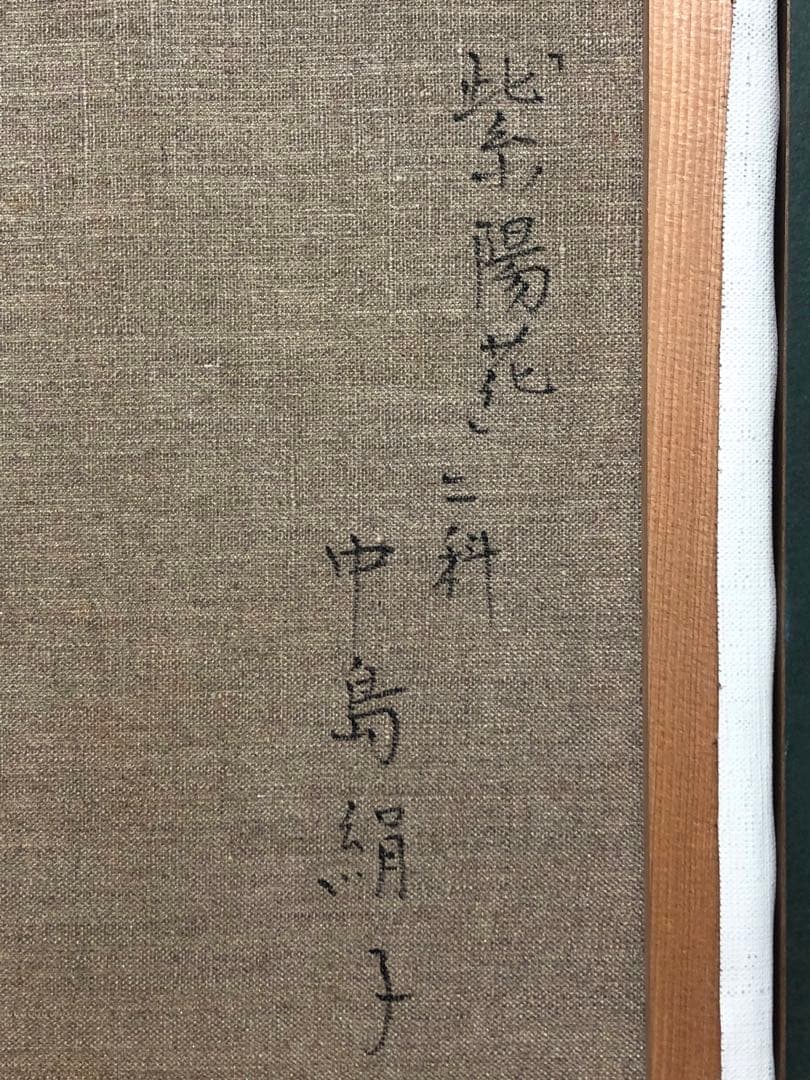 「紫陽花」
二科
中島絹子